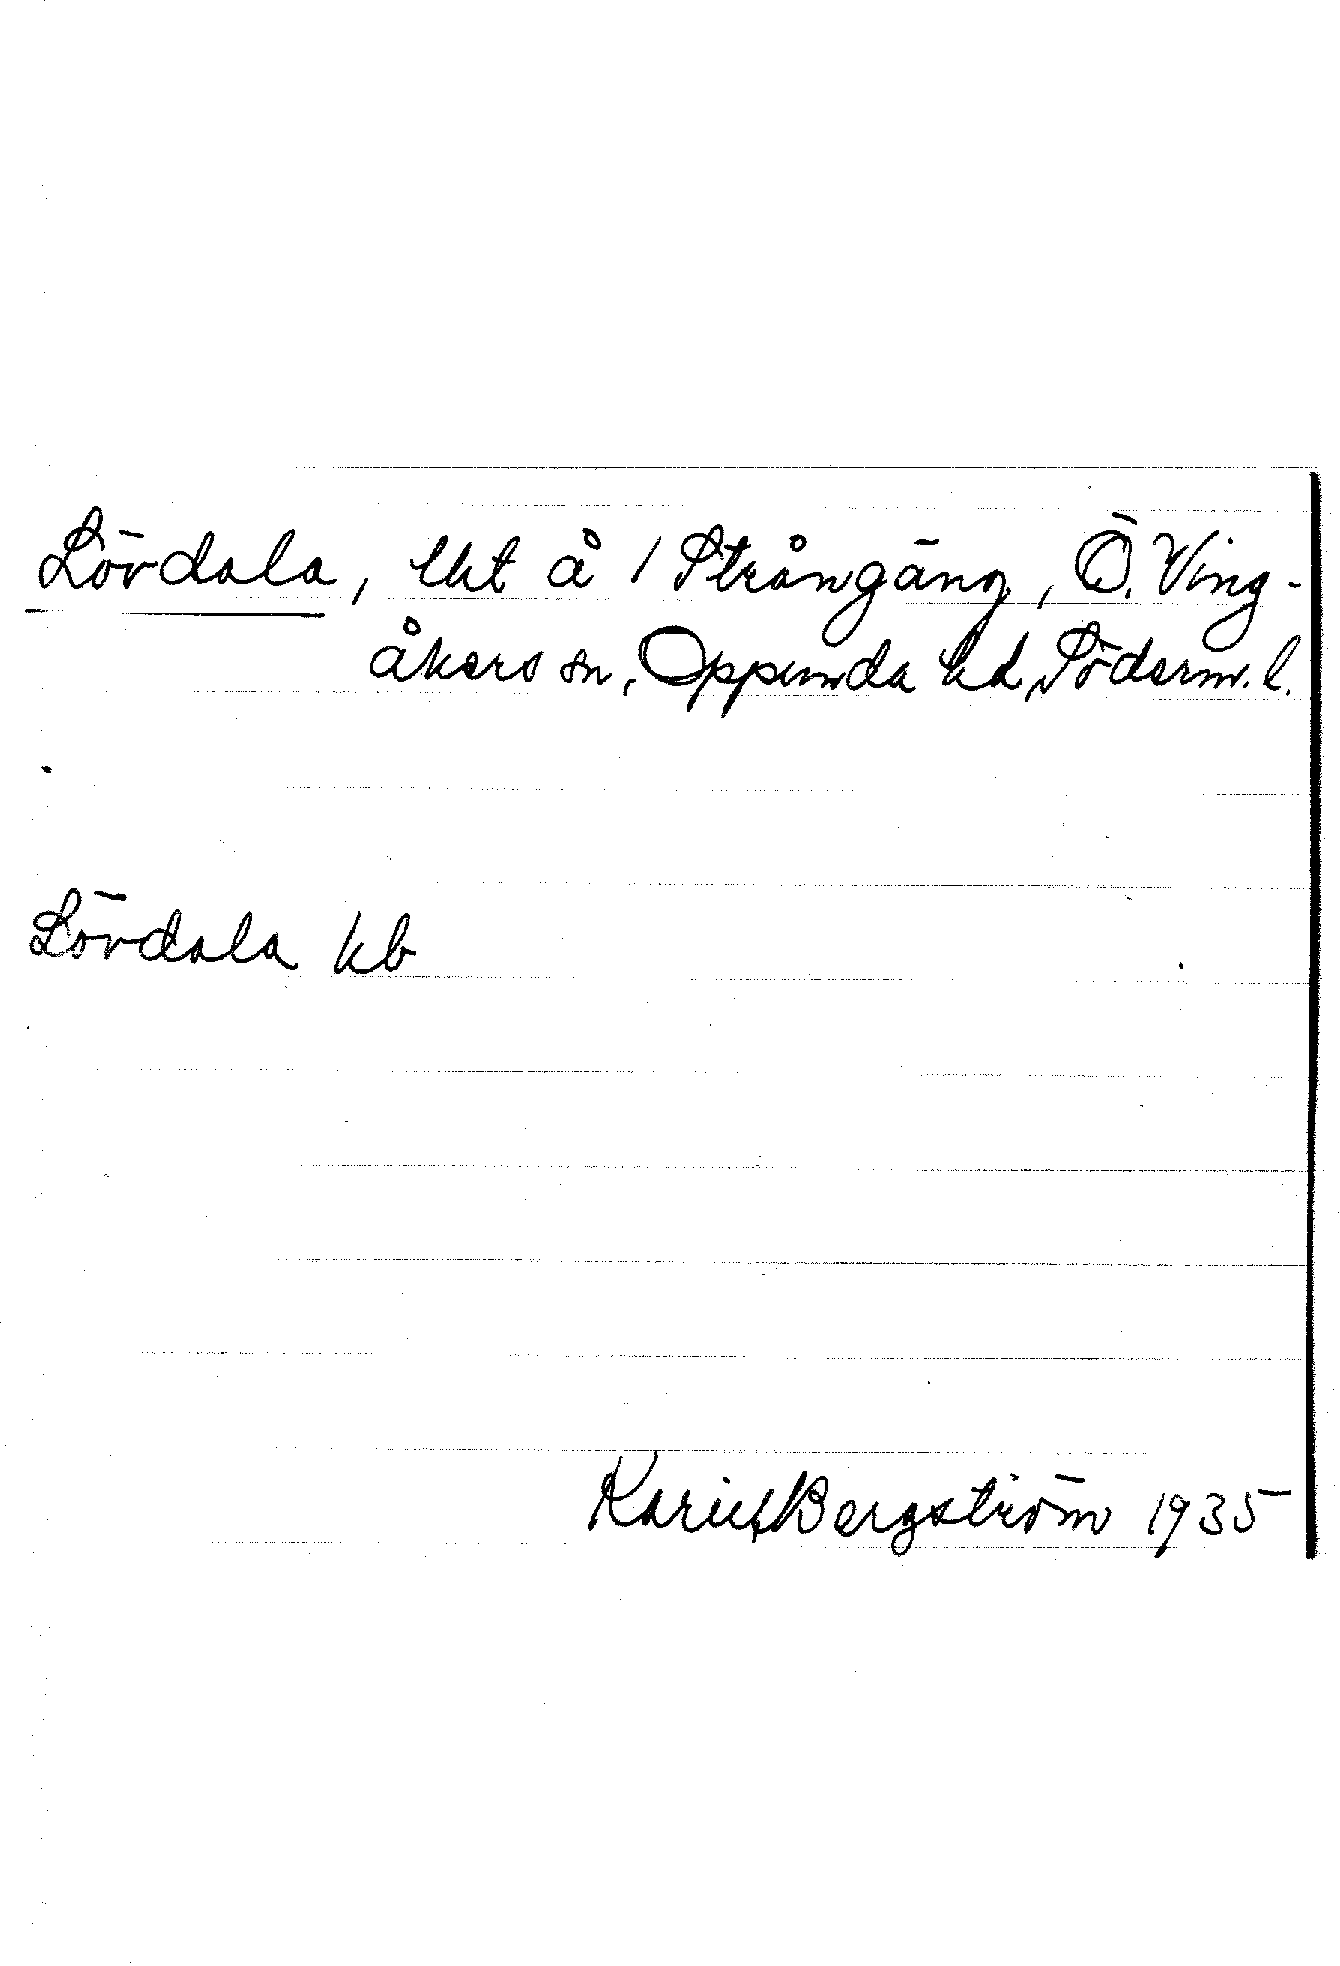 Lövdala, lht å 1 Strångäng, Ö. Ving-
åkers sn, Oppunda hd, Söderm. l.
Lövdala kb
Karin Bergström 1935